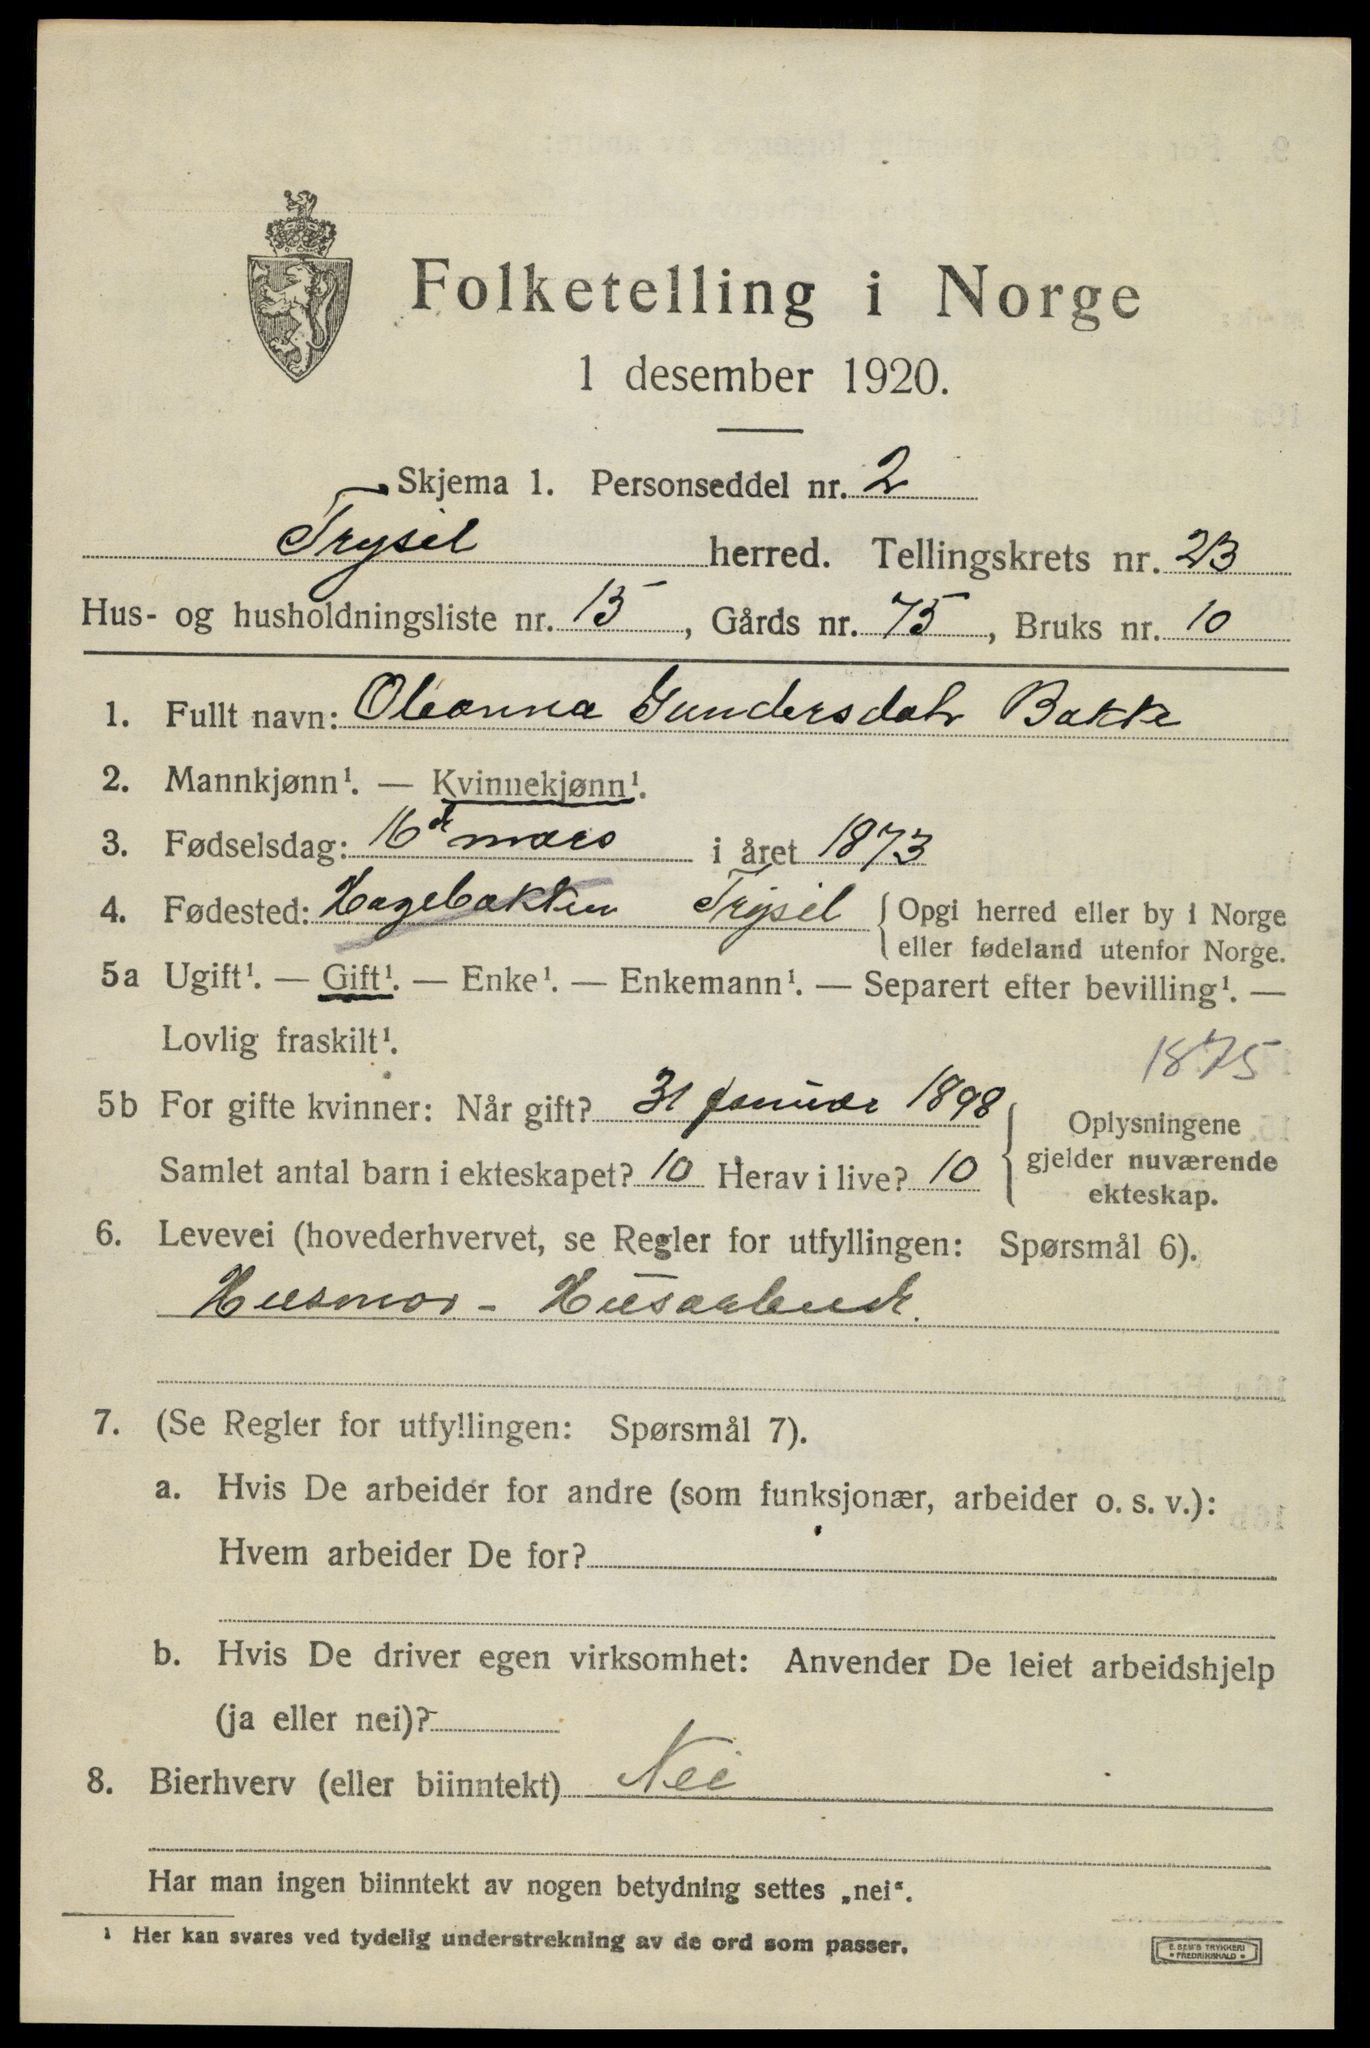 Folketelling i Norge
1 desember 1920.
Skjema 1. Personseddel nr. 2
Trysil herred. Tellingskrets nr. 23
Hus- og husholdningsliste nr. 15, Gårds nr. 75, Bruks nr. 10
1. Fullt navn: Oleanna Gundersdatr Bakke
2. Mannkjønn¹. — Kvinnekjønn¹.
3. Fødselsdag: 16de mars i året 1873
4. Fødested: Hagebakken Trysil { Opgi herred eller by i Norge
eller fødeland utenfor Norge.
5a Ugift¹. — Gift¹. — Enke¹. — Enkemann¹. — Separert efter bevilling¹. —
Lovlig fraskilt¹.
1875
5b For gifte kvinner: Når gift? 31 januar 1898
Samlet antal barn i ekteskapet? 10 Herav i live? 10
Oplysningene
gjelder nuværende
ekteskap.
6. Levevei (hovederhvervet, se Regler for utfyllingen: Spørsmål 6).
Husmor - Husarbeide
7. (Se Regler for utfyllingen: Spørsmål 7).
a. Hvis De arbeider for andre (som funksjonær, arbeider o. s. v.):
Hvem arbeider De for?
b. Hvis De driver egen virksomhet: Anvender De leiet arbeidshjelp
(ja eller nei)?
8. Bierhverv (eller biinntekt) Nei
Har man ingen biinntekt av nogen betydning settes „nei“.
¹ Her kan svares ved tydelig understrekning av de ord som passer.
E. SEM'S TRYKKERI
FREDRIKSHALD